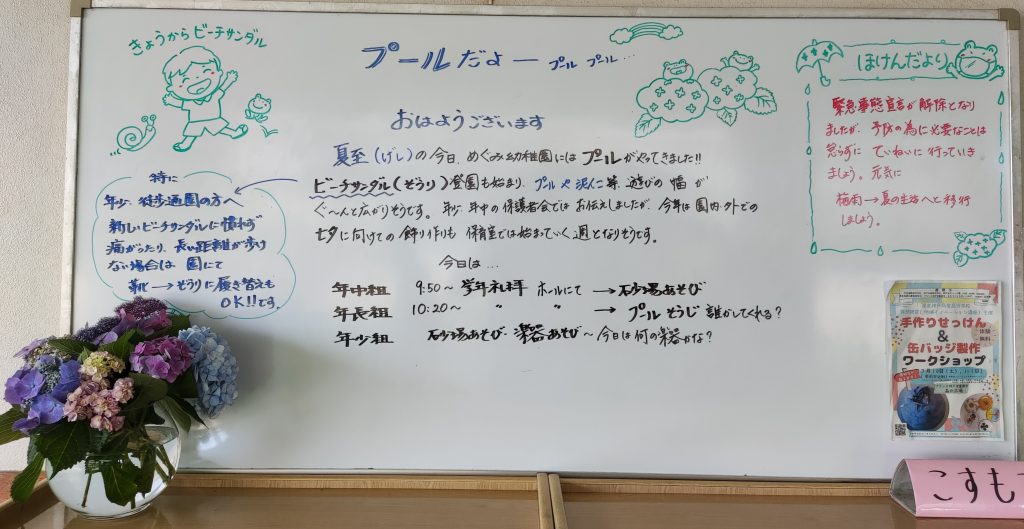 きょうからビーチサンダル
プールだよー プール プール…
おはようございます
夏至(げし)の今日、めぐみ幼稚園にはプールがやってきました!!
ビーチサンダル(ぞうり)登園も始まり、プールや泥んこ等、遊びの幅が
ぐ〜んと広がりそうです。年少、年中の保護者会ではお伝えしましたが、今年は園内・外での
七夕に向けての飾り作りも保育室では始まっていく週となりそうです。
今日は…
年中組 9:50〜 学年礼拝 ホールにて →砂場あそび
年長組 10:20〜 〃 〃 → プールそうじ 誰がしてくれる?
年少組 砂場あそび・楽器あそび〜今日は何の楽器かな?
特に
年少、徒歩通園の方へ
新しいビーチサンダルに慣れず
痛がったり、長い距離が歩け
ない場合は園にて
靴→ぞうりに履き替えも
OK!!です。
ほけんだより
緊急事態宣言が解除となり
ましたが、予防の為に必要なことは
怠らずに ていねいに 行っていき
ましょう。元気に
梅雨→夏の生活へと移行
しましょう。
手作りせっけん
&
缶バッジ製作
ワークショップ
体験
無料
こすも